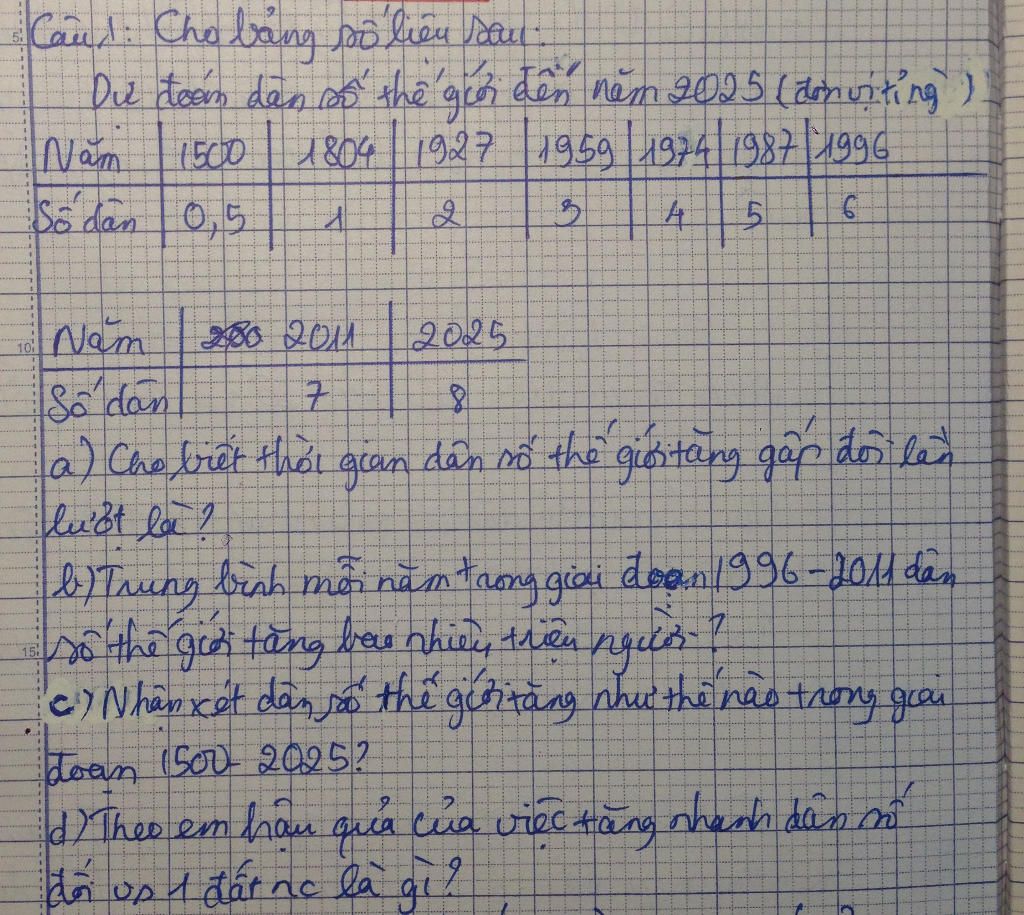 Câu 1: Cho bảng số liệu sau:
Dự đoán dân số thế giới đến năm 2025 (đơn vị tỉ ng`)
Năm | 1500 | 1804 | 1927 | 1959 | 1974 | 1987 | 1996
Số dân | 0,5 | 1 | 2 | 3 | 4 | 5 | 6
Năm | 2011 | 2025
Số dân | 7 | 8
a) Cho biết thời gian dân số thế giới tăng gấp đôi lần
lượt là?
b) Trung bình mỗi năm trong giai đoạn 1996-2011 dân
số thế giới tăng bao nhiêu triệu người?
c) Nhận xét dân số thế giới tăng như thế nào trong giai
đoạn 1500-2025?
d) Theo em hậu quả của việc tăng nhanh dân số
đối vs 1 đất nc là gì?